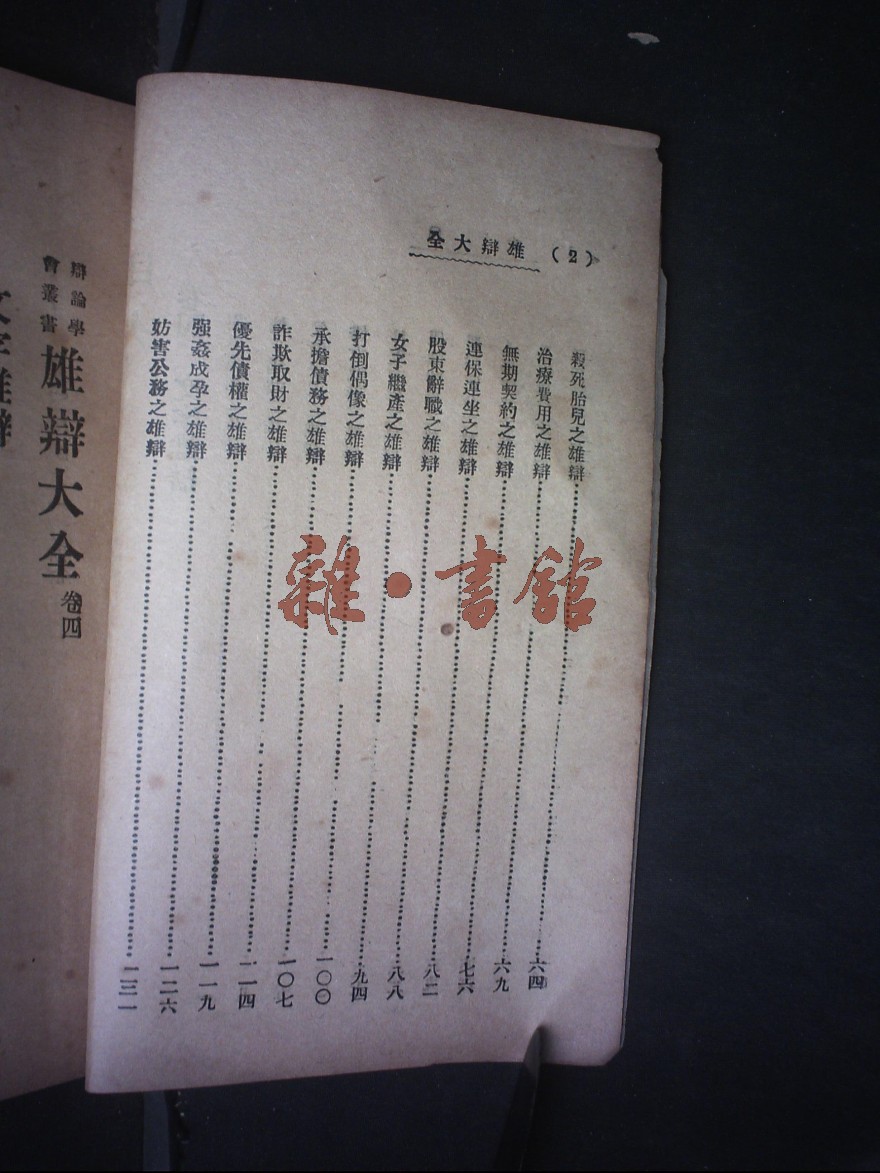 (2) 雄辯大全
殺死胎兒之雄辯……六四
治療費用之雄辯……六九
無期契約之雄辯……七六
連保連坐之雄辯……八二
股東辭職之雄辯……八八
女子繼產之雄辯……九四
打倒偶像之雄辯……一〇〇
承擔債務之雄辯……一〇七
詐欺取財之雄辯……一一四
優先債權之雄辯……一一九
强姦成孕之雄辯……一二六
妨害公務之雄辯……一三一
辯論學
會叢書
雄辯大全 卷四
雜·書館